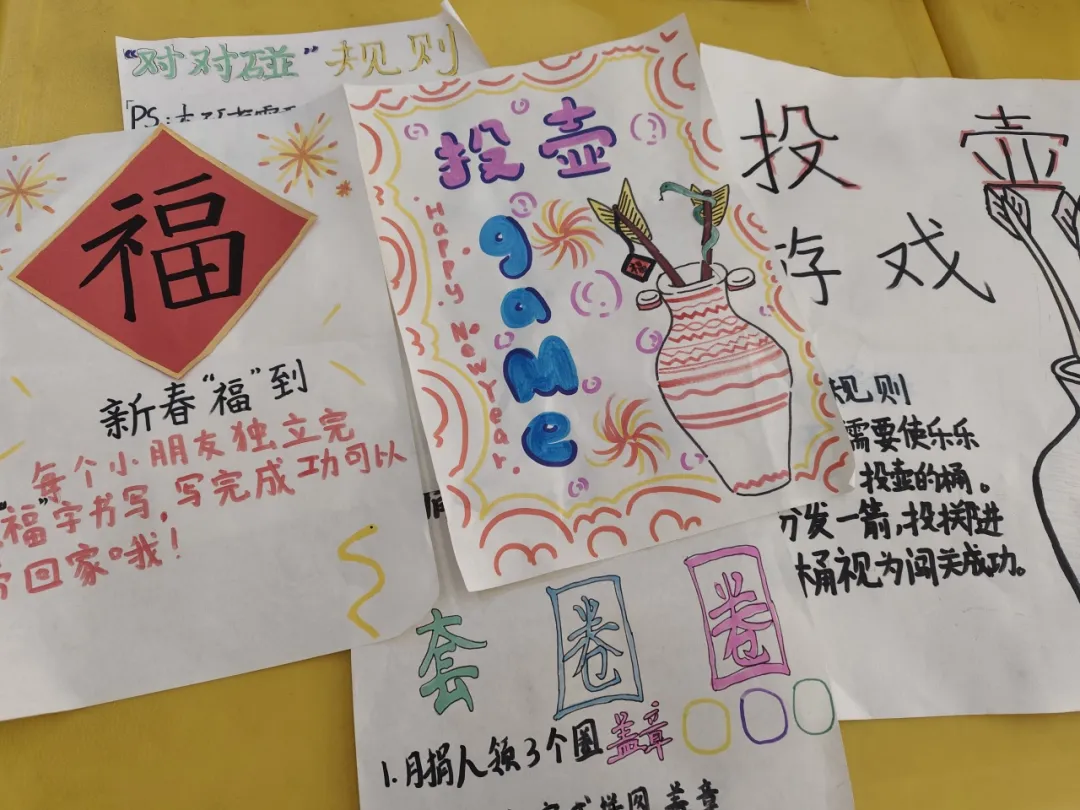 “对对碰”规则
PS:
福
新春“福”到
每个小朋友独立完
“福”字书写,写完成功可以
回家哦!
投壶
game
Happy New Year.
福
投壶
游戏
规则
需要使乐乐
投壶的桶。
分发一箭,投掷进
桶视为闯关成功。
套圈圈
1.月捐人领3个圈盖章